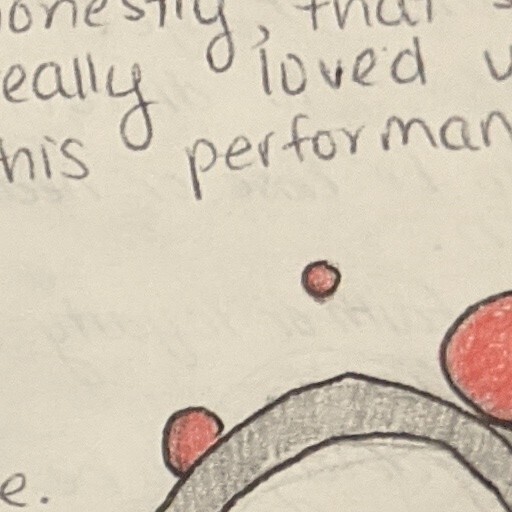 onestly, that s
eally loved w
his performan
e.